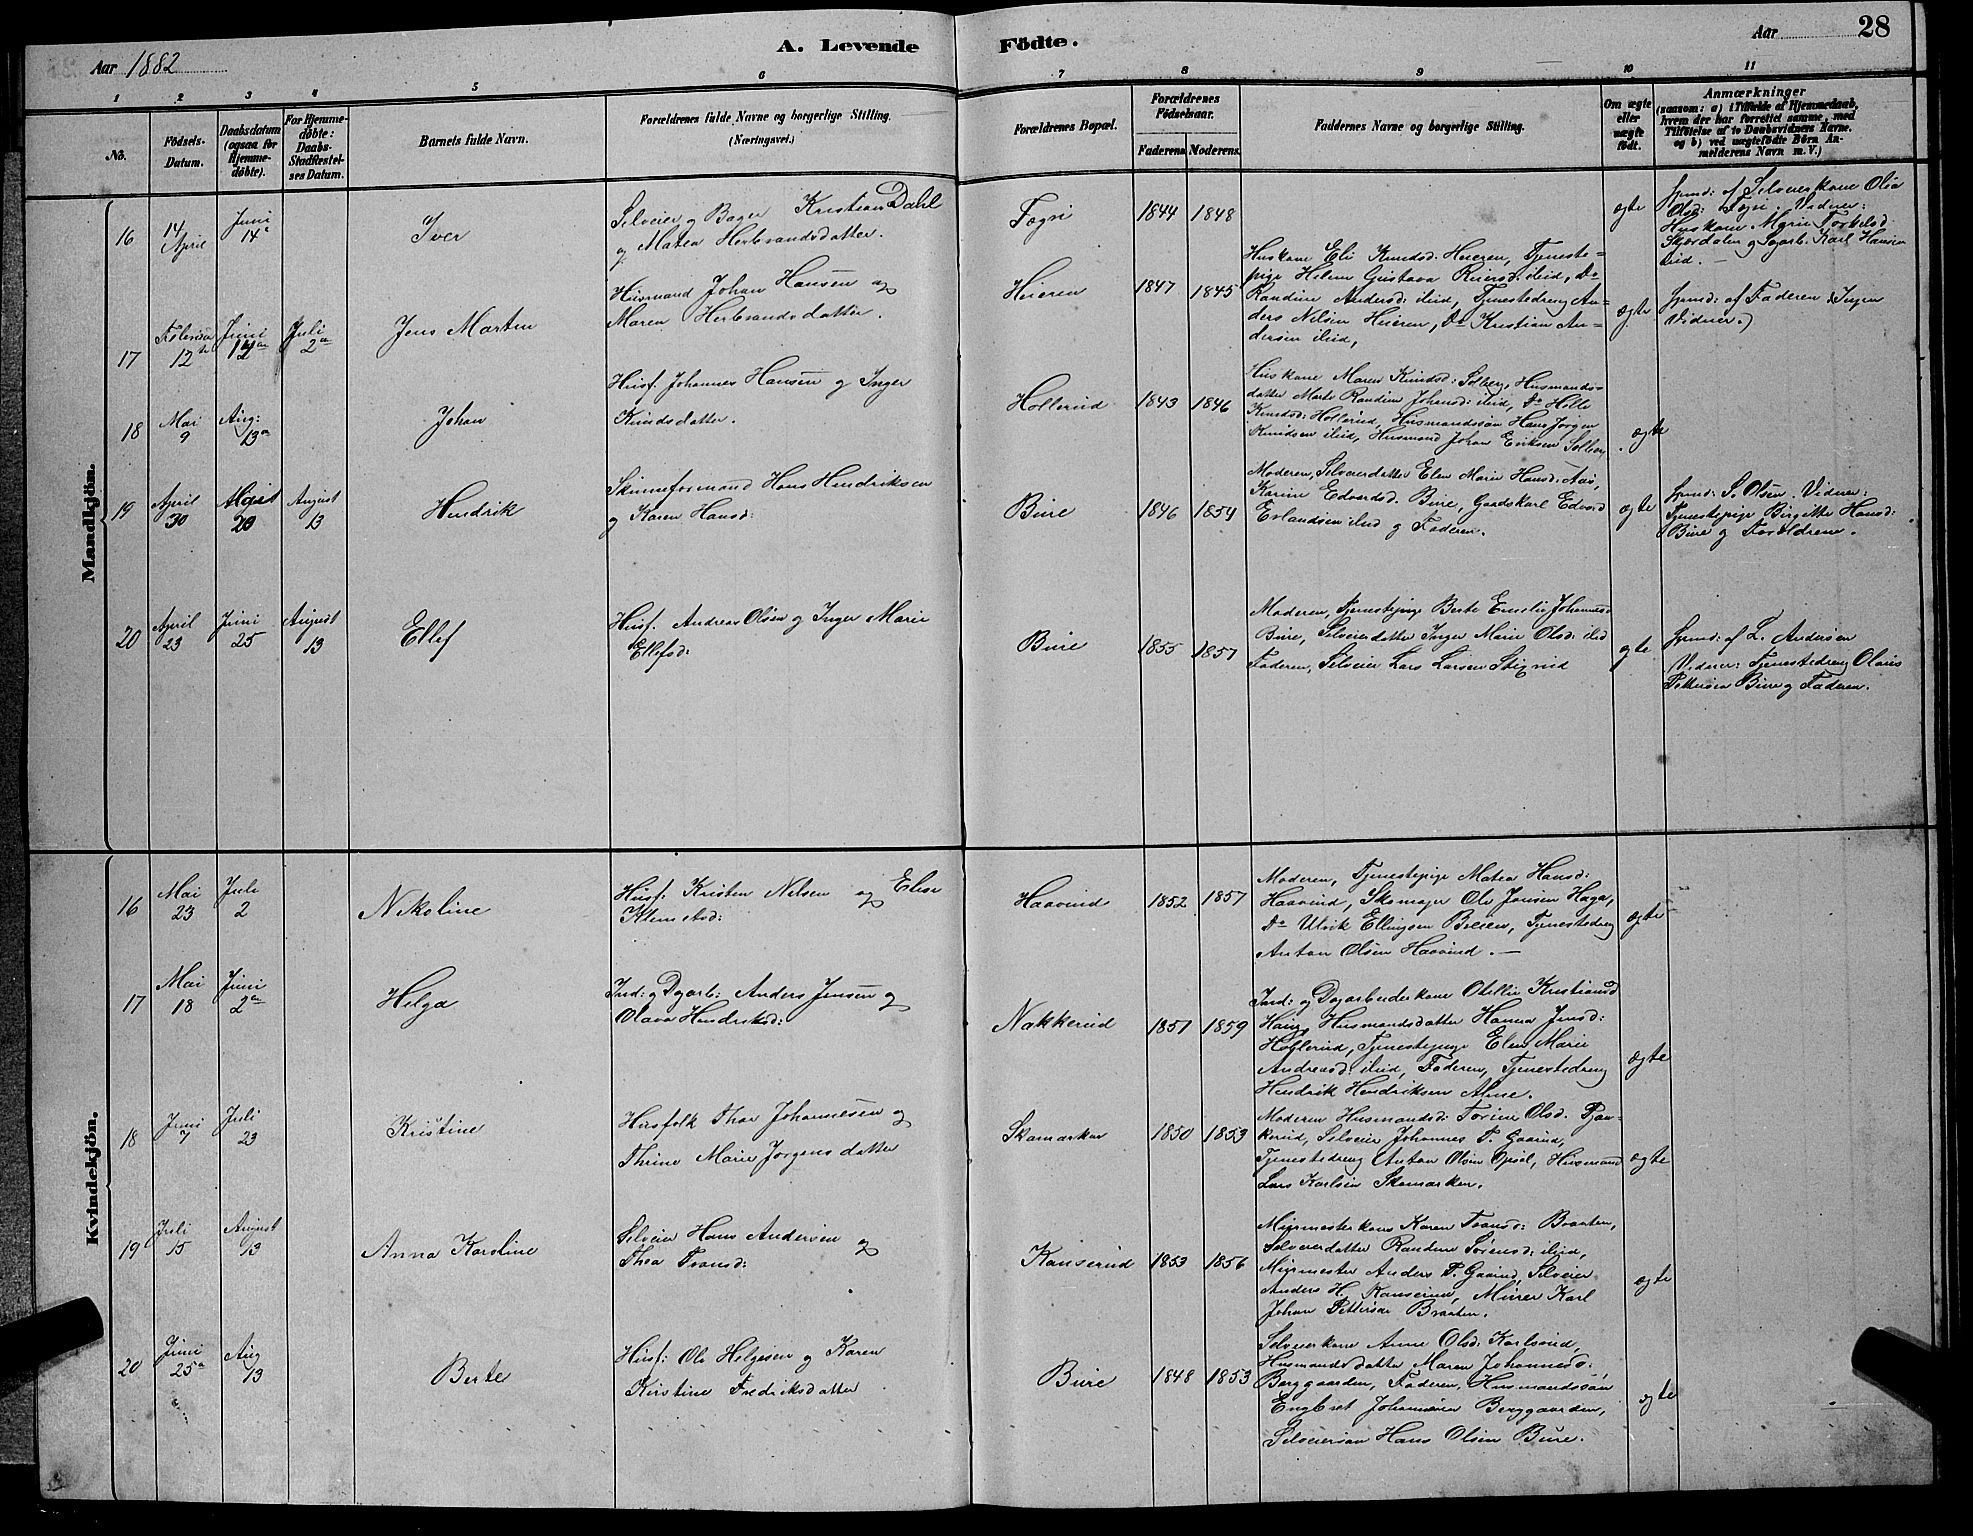 28
A. Levende Fødte.
Aar 1882
Aar
1 2 3 4 5 6 7 8 9 10 11
No.
Fødsels-Datum.
Daabsdatum (ogsaa for Hjemmedøbte).
For Hjemmedøbte: Daabs-Stadfæstelses Datum.
Barnets fulde Navn.
Forældrenes fulde Navne og borgerlige Stilling.
(Næringsvei.)
Forældrenes Bopæl.
Forældrenes Fødselsaar.
Faderens Moderens.
Faddernes Navne og borgerlige Stilling.
Om ægte eller uægte født.
Anmærkninger
(saasom: a) i Tilfælde af Hjemmedaab,
hvem der har forrettet samme, med
Tilføielse af to Daabsvidners Navne.
og b) ved uægtefødte Børn An-
melderens Navn m. V.)
Mandkjøn.
16
14 April
Juni 14
Iver
Selveier og Bager Kristian Dahl
og Matea Herbrandsdatter.
Fogri
1844 1848
ægte
af Selveierkone Olia
Olsd: Fogri. Vidner:
Huskone Marie Torkelsd:
Skjærdalen og Karl Hansen
ibid.
17
12te
Juni
Juli 2den
Jens Martin
Husmand Johan Hansen og
Maren Herbrandsdatter.
Heieren
1847 1845
Huskone Eli Knudsd: Heieren, Tjeneste-
pige Helene Gustava Reiersd: ibid, Do
Randine Andersd: ibid, Tjenestedreng An-
ders Nilsen Heieren, Do Kristian An-
dersen ibid,
ægte
af Faderen (Ingen
Vidner.)
18
Mai 9
Aug: 13
Johan
Husf. Johannes Hansen og Inger
Knudsdatter.
Hollerud
1843 1846
Huskone Maren Knudsd: Solberg, Husmands-
datter Marte Randine Johansd: ibid, Do Helle
Knudsd: Hollerud, Husmandssøn Hans Jørgen
Knudsen ibid, Husmand Johan Eriksen Solberg.
ægte
19
April 30
20
August 13
Hendrik
Skinneformand Hans Hendriksen
og Karen Hansd:
Bure
1846 1854
Moderen, Selveierdatter Elen Marie Hansd: Aas,
Karine Edvardsd. Bure, Gaardskarl Edvard
Erlandsen ibid og Faderen.
ægte
S. Olsen. Vidner:
Tjenestepige Birgitte Hansd:
Bure og Forældrene.
20
April 23
Juni 25
August 13
Ellef
Husf. Andreas Olsen og Inger Marie
Ellefsd:
Bure
1855 1857
Moderen, Tjenestepige Berte Emilie Johannesd
Bure, Selveierdatter Inger Marie Olsd: ibid
Faderen, Selveier Lars Larsen
ægte
af L. Andersen
Vidner: Tjenestedreng Olaus
Pettersen Bure og Faderen.
Kvindekjøn.
16
Mai 23
Juli 2
Nikoline
Husf. Kristen Nilsen og Elise
Klemetsd:
Haavind
1852 1857
Moderen, Tjenestepige Matea Hansd:
Haavind, Skomager Ole Jonsen Haga,
Do Ulrik Ellingsen Breien, Tjenestedreng
Anton Olsen Haavind.
ægte
17
Mai 18
Juni 2den
Helga
Ind: og Dgarb: Anders Jensen og
Olava Hendriksd:
Nakkerud
1857 1859
Ind: og Dagarbeiderkone Otellie Kristiansd
Haug, Husmandsdatter Hanna Jensd:
Hollerud, Tjenestepige Elen Marie
Andreasd: ibid, Faderen, Tjenestedreng
Hendrik Hendriksen Alme.
ægte
18
Juni 7
Juli 23
Kristine
Husfolk Thor Johannesen og
Thrine Marie Jørgensdatter
Skamarken
1850 1853
Moderen Husmandsd: Torine Olsd.
Selveier Johannes P. Gaarud,
Tjenestedreng Anton Olsen Opsal, Husmand
Lars Karlsen Skamarken.
ægte
19
Juli 15
August 13
Anna Karoline
Selveier Hans Andersen og
Thea Toansd:
Kanserud
1853 1856
Murmesterkone Karen Toansd: Braaten,
Selveierdatter Randine Sørensd: ibid,
Murmester Anders P. Gaarud, Selveier
Anders H. Kanserud, Murer Karl
Johan Pettersen Braaten.
ægte
20
Juni 25
Aug 13
Berte
Husf: Ole Helgesen og Karen
Kirstine Fredriksdatter
Bure
1848 1853
Selveierkone Anne Olsd: Karlsrud,
Husmandsdatter Maren Johannesd:
Berggaarden, Faderen, Husmandssøn
Engbret Johannesen Berggaarden,
Selveiersøn Hans Olsen Bure.
ægte